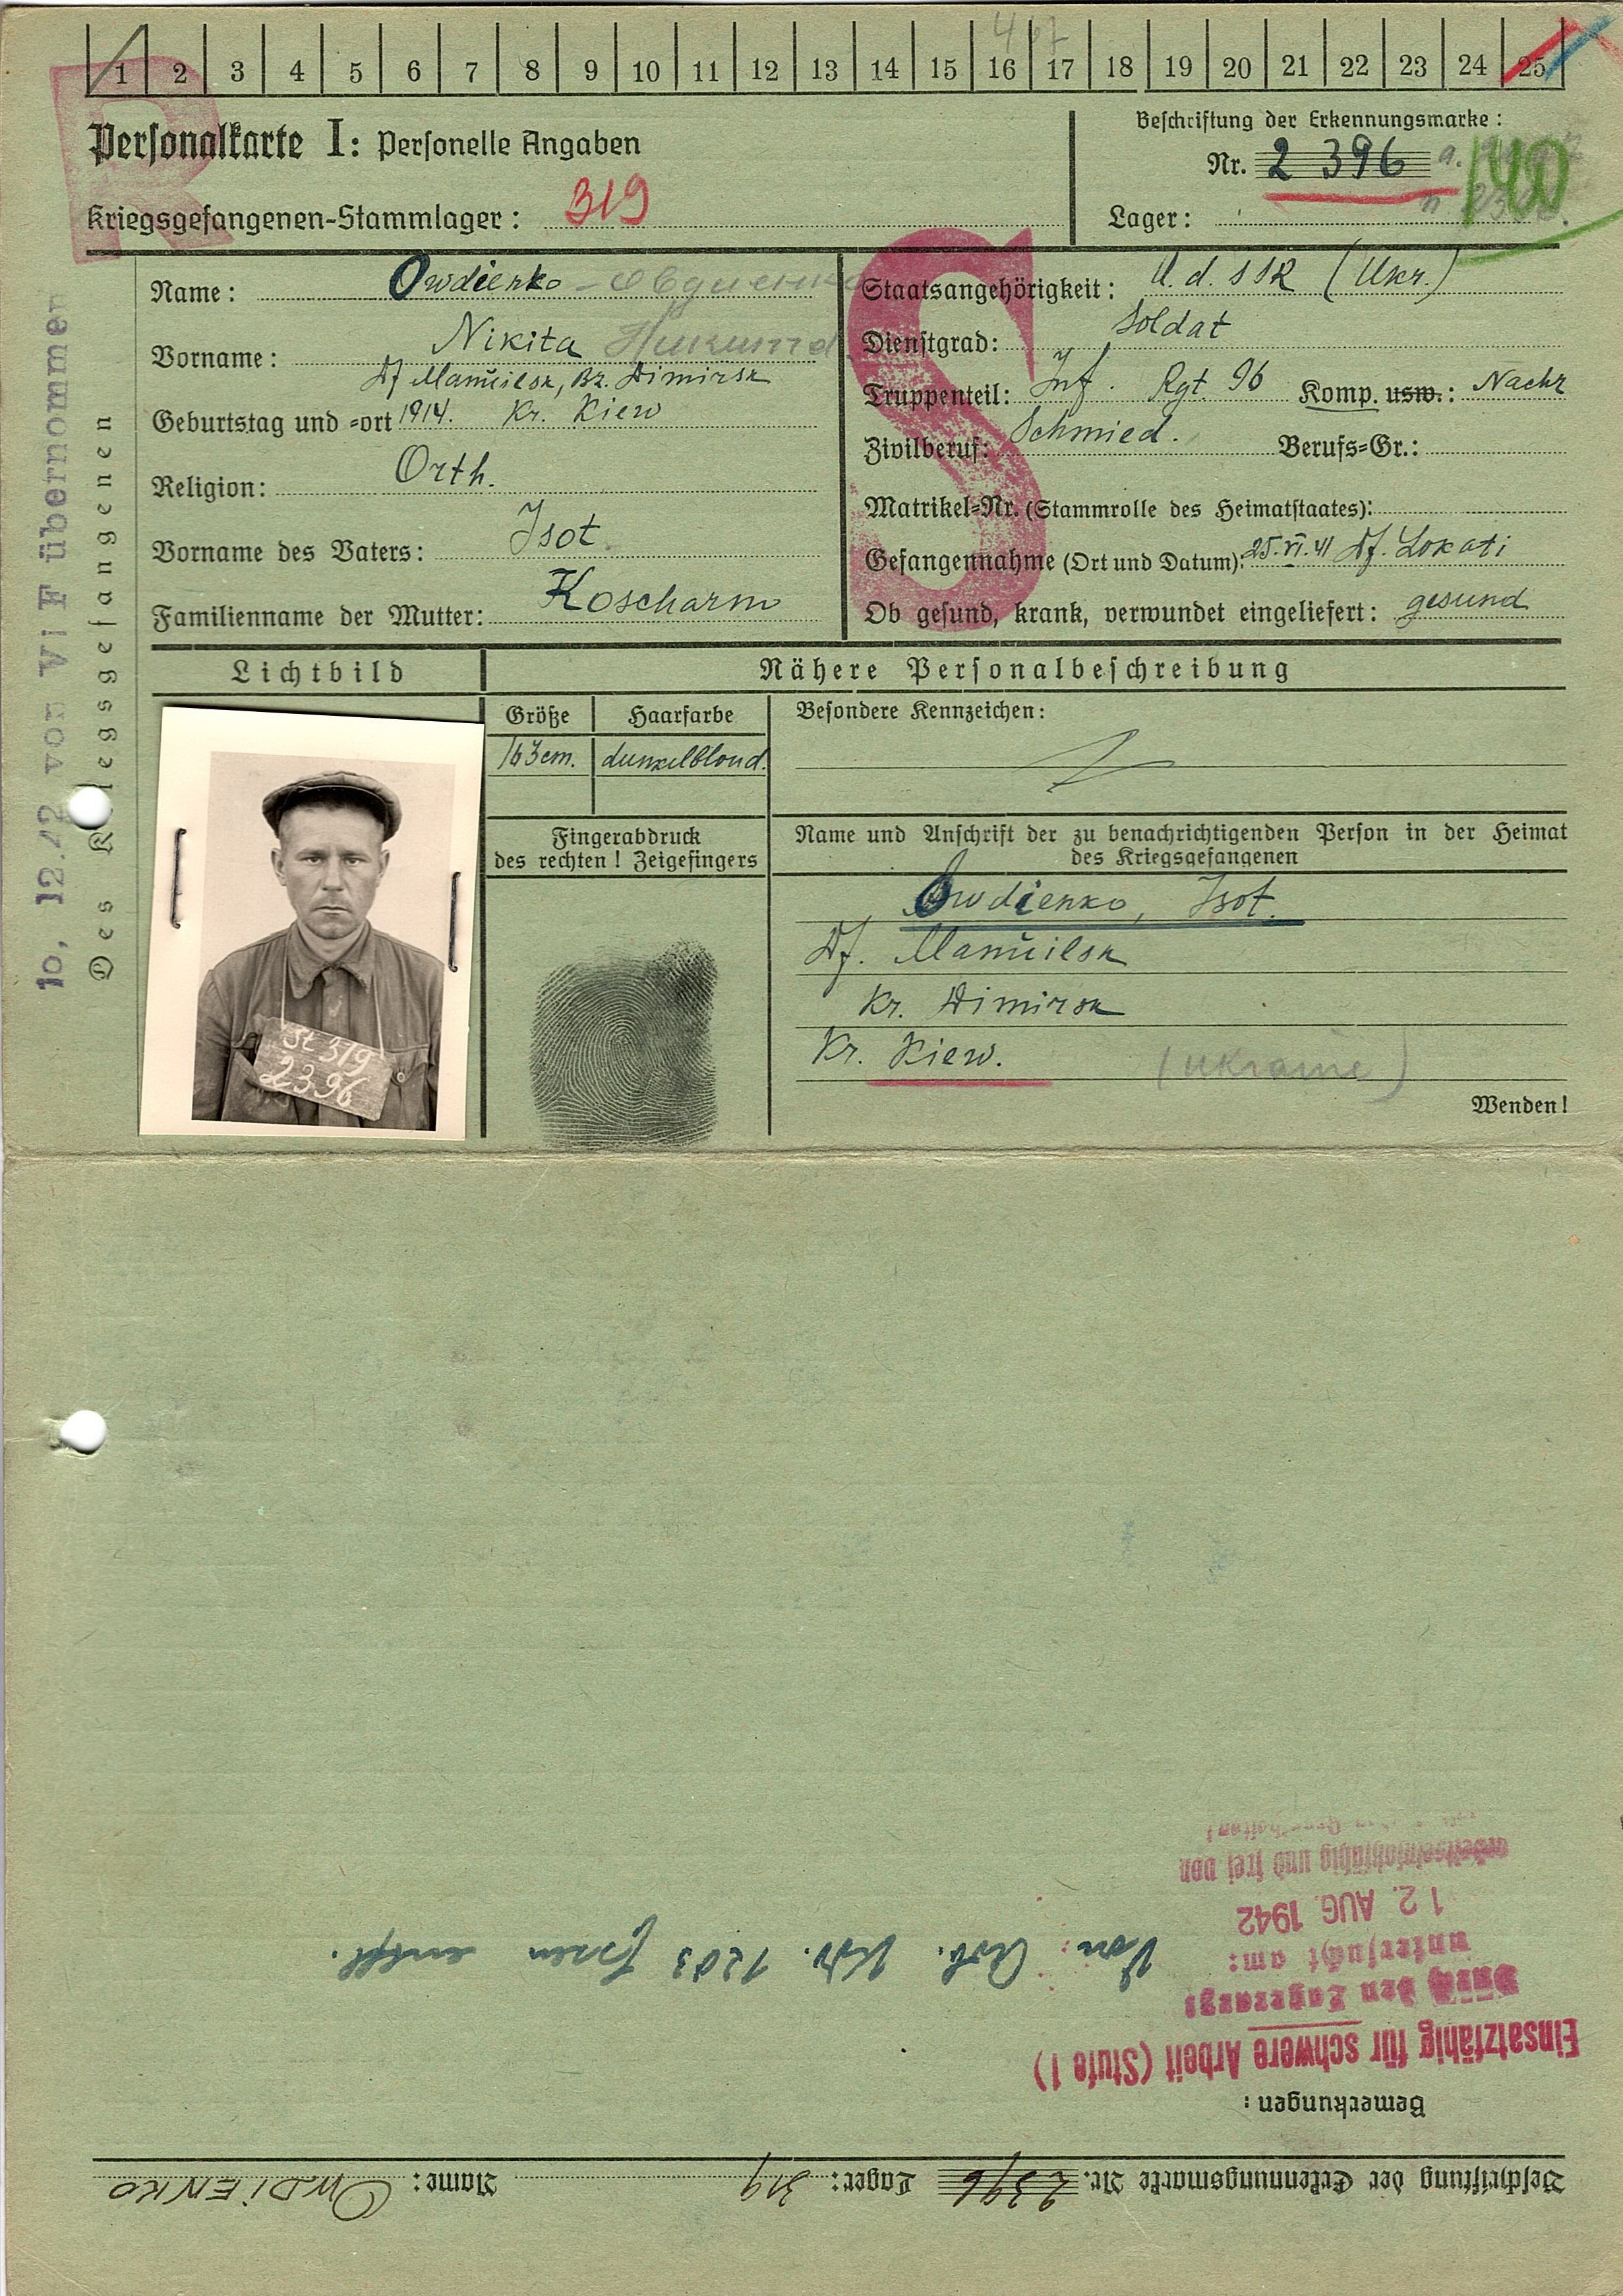 1 2 3 4 5 6 7 8 9 10 11 12 13 14 15 16 17 18 19 20 21 22 23 24 25
R
Personalkarte I: Personelle Angaben
Kriegsgefangenen-Stammlager: 319
Beschriftung der Erkennungsmarke:
Nr. 2396
140
Lager:
10, 12.42 von Vi F übernommen
Des Kriegsgefangenen
Name: Owdienko – Овдиенко
Vorname: Nikita Никита
Df Manuilsk, Bz. Dimirsk
Geburtstag und -ort 1914. Kr. Kiew
Religion: Orth.
Vorname des Vaters: Isot.
Familienname der Mutter: Koscharno
S
Staatsangehörigkeit: U.d.SSR (Ukr.)
Dienstgrad: Soldat
Truppenteil: Inf. Rgt. 96 Komp. usw.: Nachr
Zivilberuf: Schmied. Berufs-Gr.:
Matrikel-Nr. (Stammrolle des Heimatstaates):
Gefangennahme (Ort und Datum): 25.VI.41 Df. Lokati
Ob gesund, krank, verwundet eingeliefert: gesund
Lichtbild
Nähere Personalbeschreibung
Größe Haarfarbe
163cm. dunkelblond.
Besondere Kennzeichen:
St 319
2396
Fingerabdruck
des rechten! Zeigefingers
Name und Anschrift der zu benachrichtigenden Person in der Heimat
des Kriegsgefangenen
Owdienko, Isot.
Df. Manuilsk
Kr. Dimirsk
Kr. Kiew. (Ukraine)
Wenden!
Beschriftung der Erkennungsmarke Nr. 2396 Lager: 319 Name: OWDIENKO
Bemerkungen:
Einsatzfähig für schwere Arbeit (Stufe 1)
Durch den Lagerarzt
untersucht am:
12. AUG. 1942
arbeitseinsatzfähig und frei von
Von Arb. Kdo. 1203 entfl.